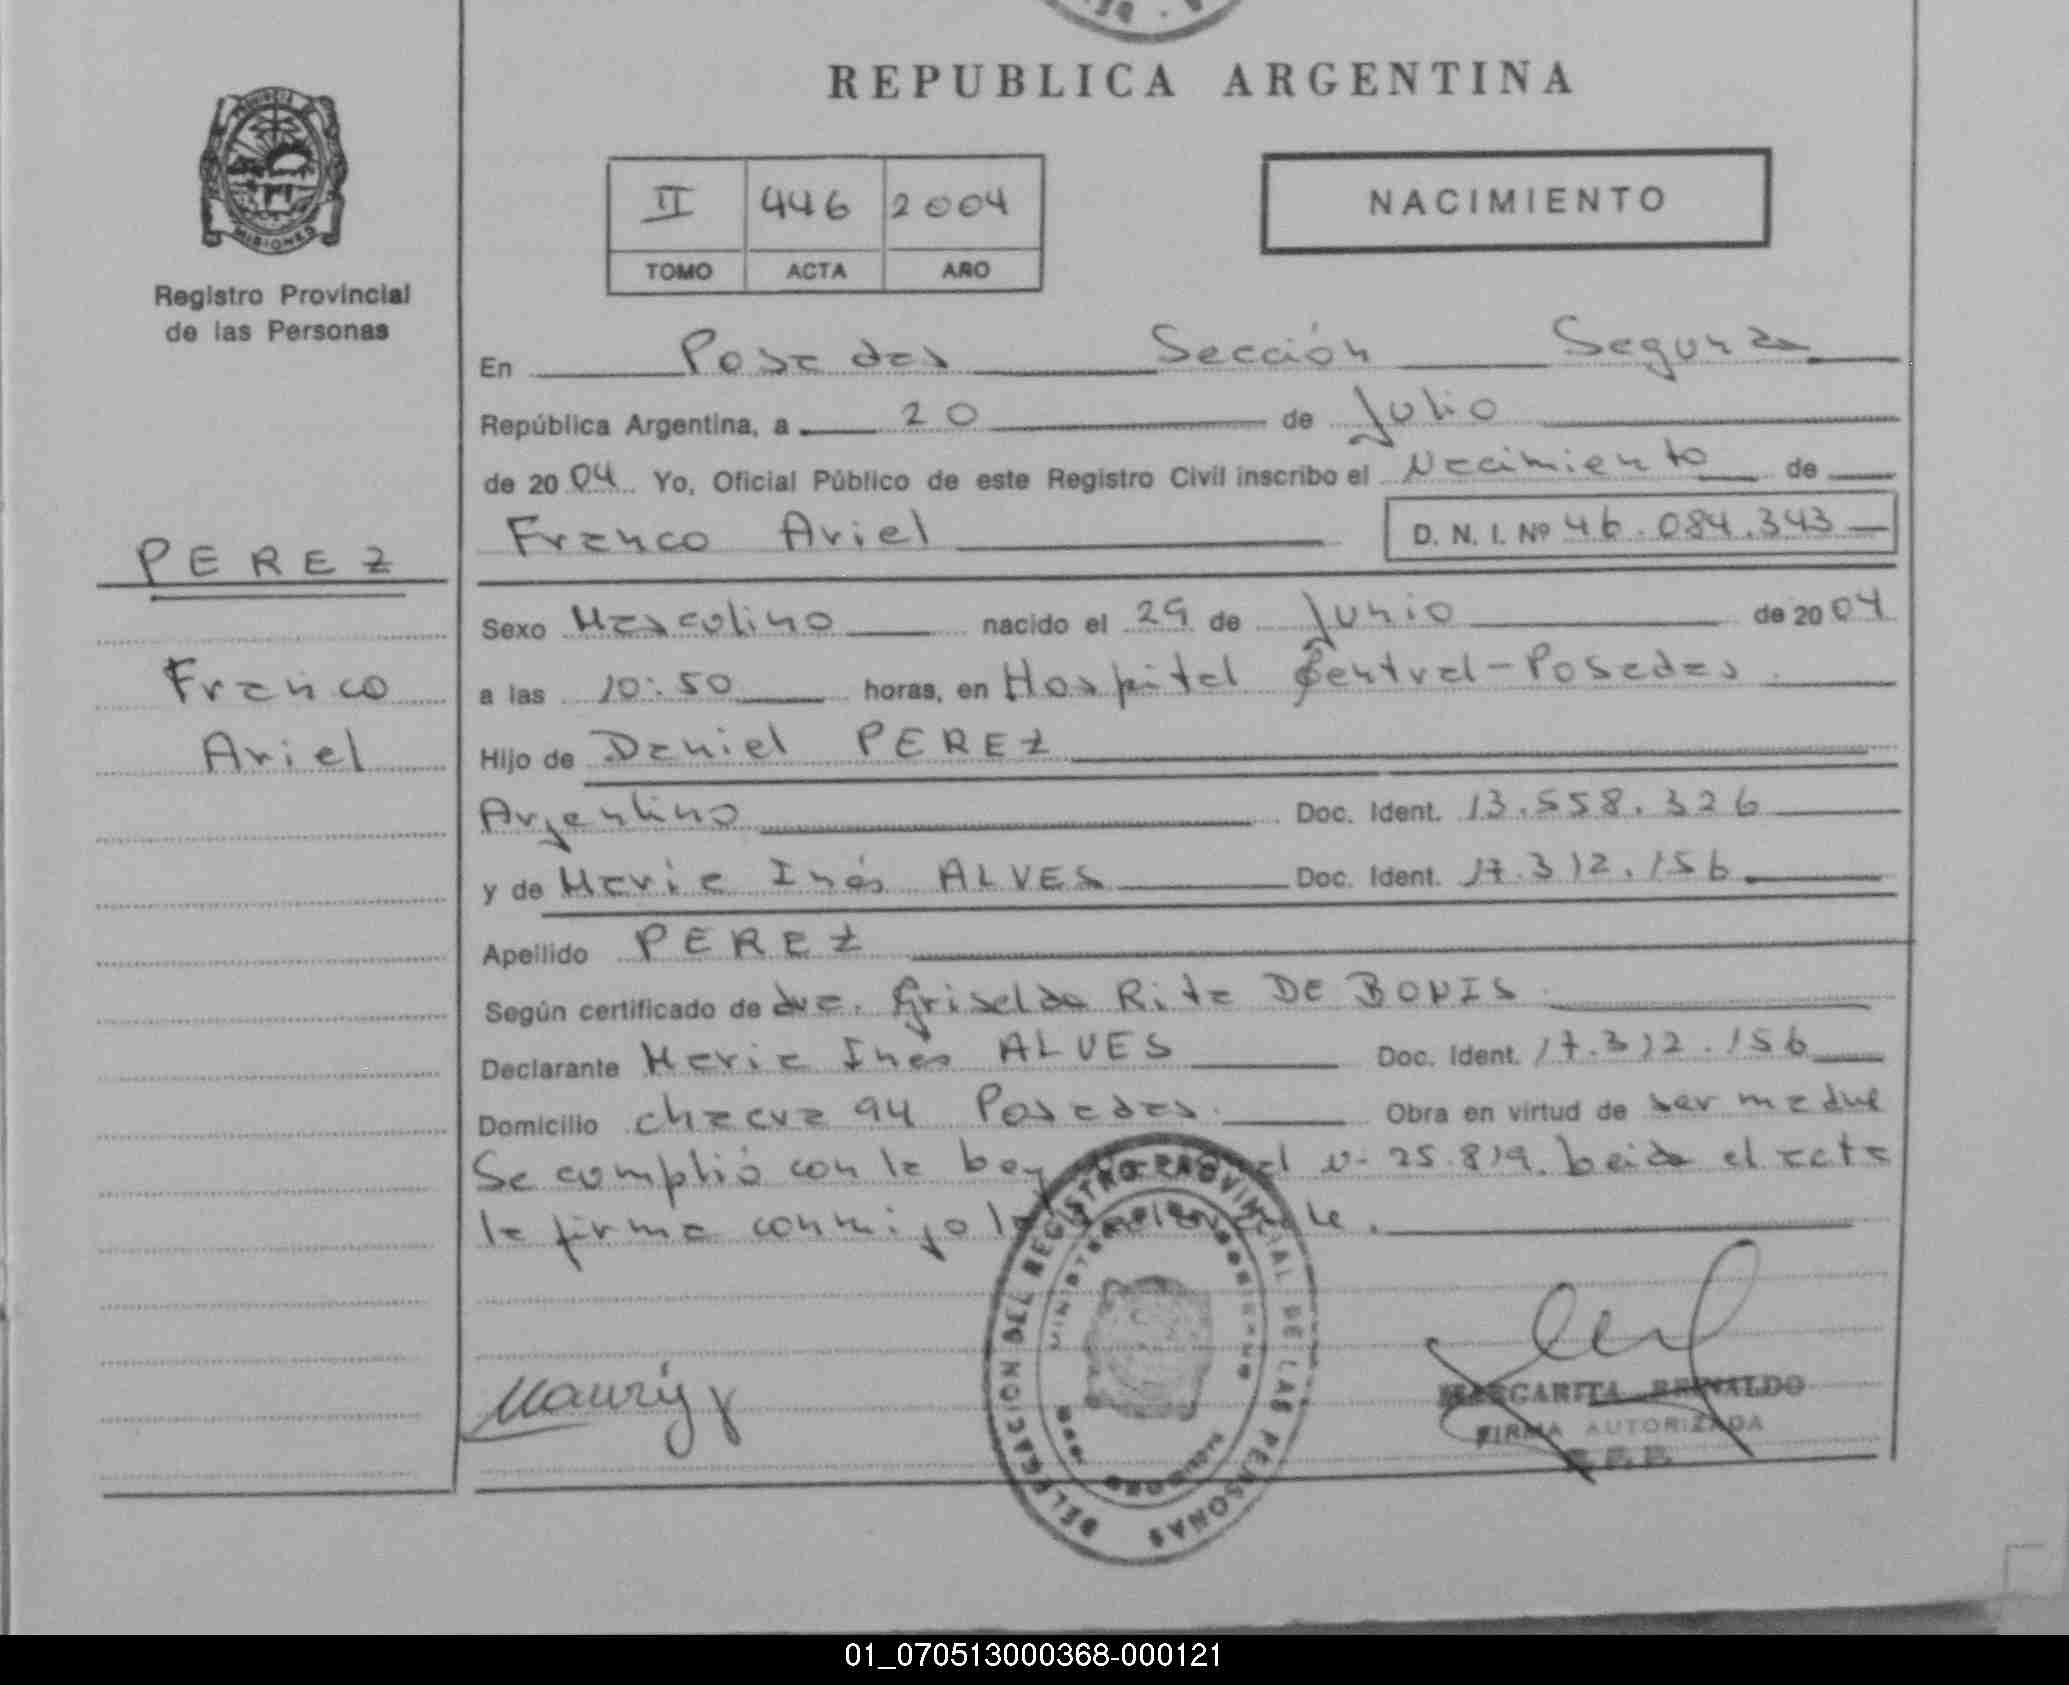 REPUBLICA ARGENTINA
PROVINCIA DE
MISIONES
Registro Provincial
de las Personas
II 446 2004
TOMO ACTA AÑO
NACIMIENTO
En Posadas Sección Segunda
República Argentina, a 20 de Julio
de 2004 Yo, Oficial Público de este Registro Civil inscribo el Nacimiento de
Franco Ariel D. N. I. Nº 46.084.343
PEREZ
Franco
Ariel
Sexo Masculino nacido el 29 de Junio de 2004
a las 10:50 horas, en Hospital Central-Posadas
Hijo de Daniel PEREZ
Argentino Doc. Ident. 13.558.326
y de Maria Inés ALVES Doc. Ident. 17.312.156
Apellido PEREZ
Según certificado de dra. Griselda Rita DE BONIS
Declarante Maria Inés ALVES Doc. Ident. 17.312.156
Domicilio chacra 94 Posadas. Obra en virtud de ser madre
Se cumplió con la Ley n- 25.819. Leida el acta
la firma conmigo la
DELEGACION DEL REGISTRO PROVINCIAL DE LAS PERSONAS
MINISTERIO DE GOBIERNO
MARGARITA REINALDO
FIRMA AUTORIZADA
01_070513000368-000121